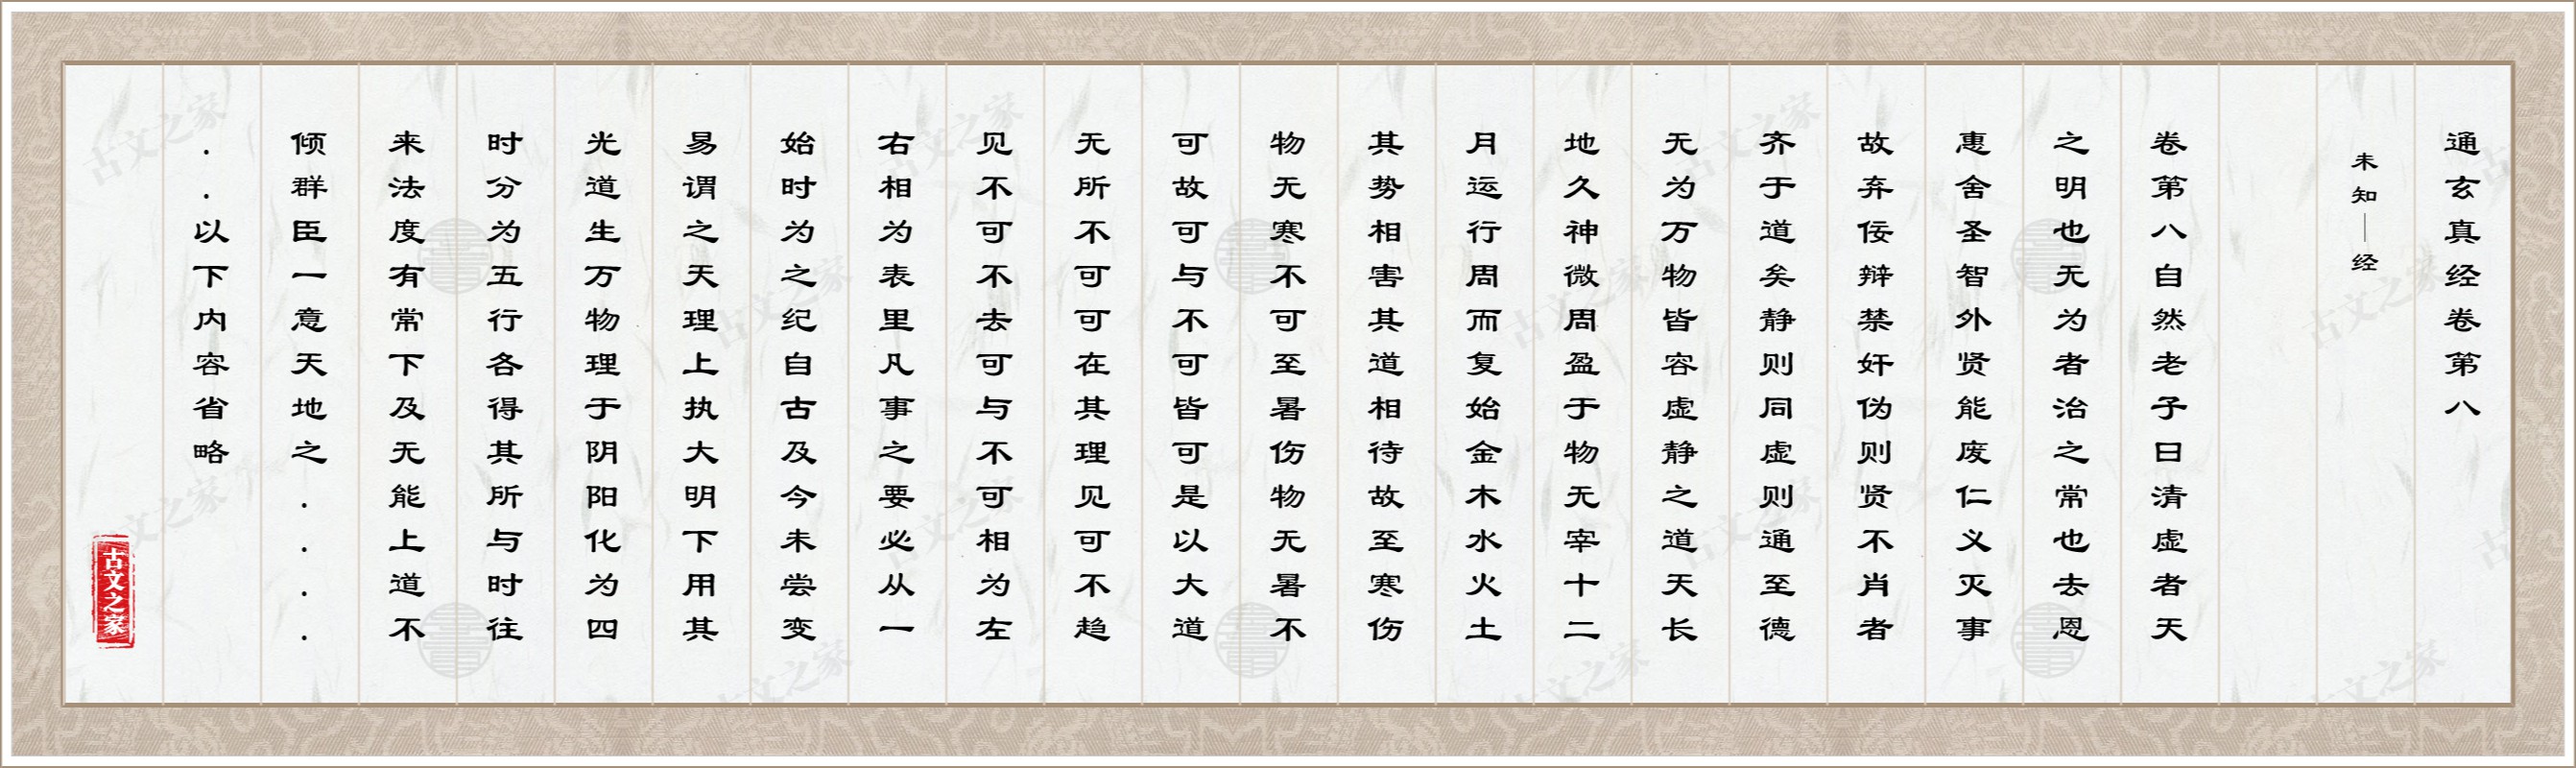 通玄真经卷第八
未知｜经
卷第八自然老子日清虚者天
之明也无为者治之常也去恩
惠舍圣智外贤能废仁义灭事
故弃佞辩禁奸伪则贤不肖者
齐于道矣静则同虚则通至德
无为万物皆容虚静之道天长
地久神微周盈于物无宰十二
月运行周而复始金木水火土
其势相害其道相待故至寒伤
物无寒不可至暑伤物无暑不
可故可与不可皆可是以大道
无所不可可在其理见可不趋
见不可不去可与不可相为左
右相为表里凡事之要必从一
始时为之纪自古及今未尝变
易谓之天理上执大明下用其
光道生万物理于阴阳化为四
时分为五行各得其所与时往
来法度有常下及无能上道不
倾群臣一意天地之....
..以下内容省略
古文之家